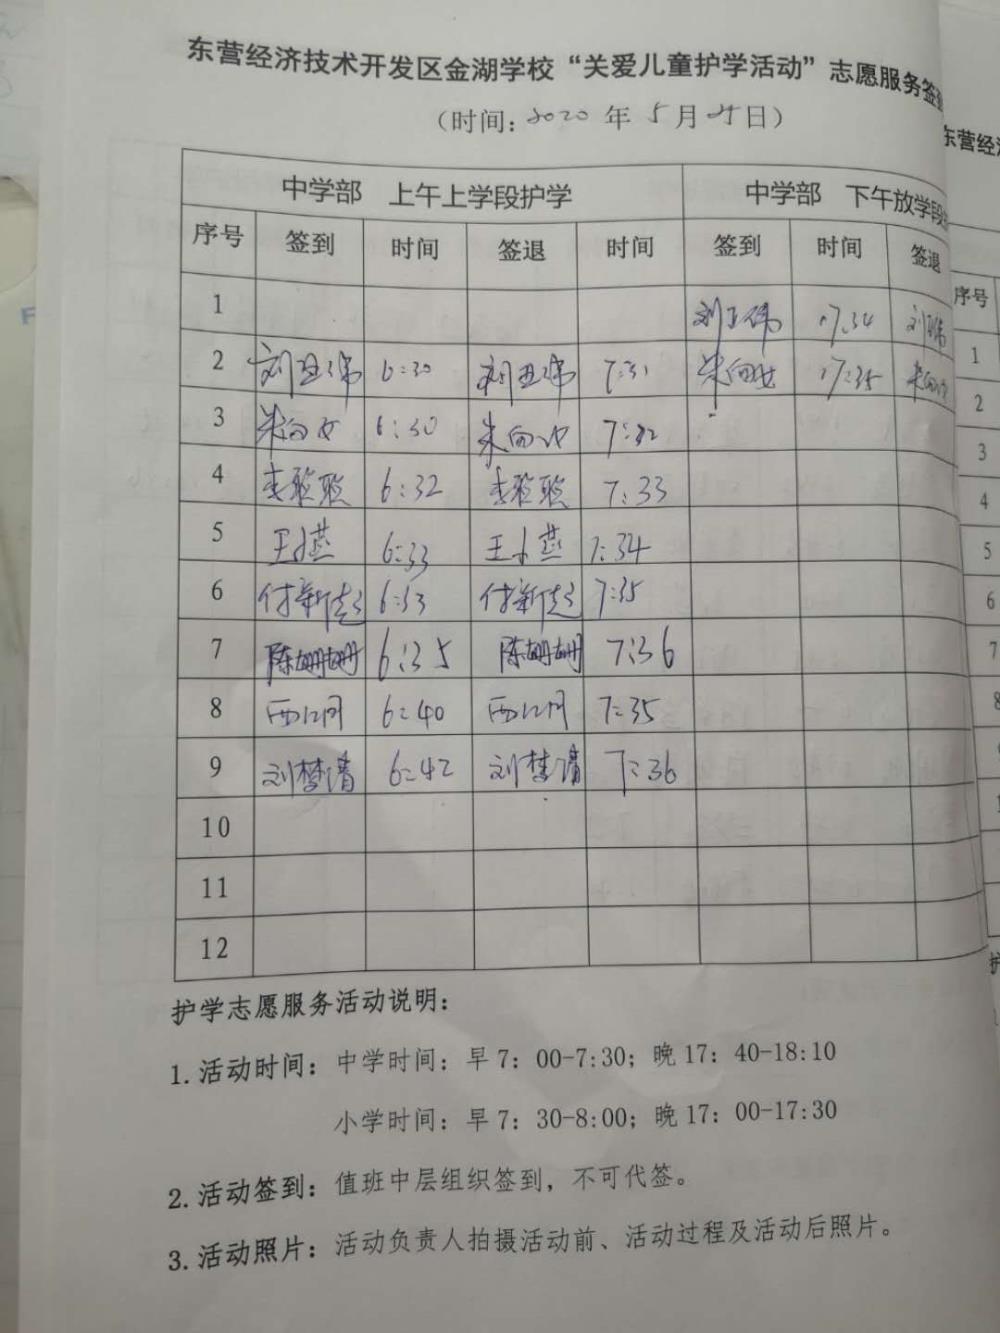 东营经济技术开发区金湖学校“关爱儿童护学活动”志愿服务签
（时间：2020年5月 日）
中学部 上午上学段护学 中学部 下午放学段
序号 签到 时间 签退 时间 签到 时间 签退
1 17:34
2 刘亚伟 6:30 刘亚伟 7:31 17:35
3 6:30 7:32
4 李聪聪 6:32 李聪聪 7:33
5 王小燕 6:33 王小燕 7:34
6 付新超 6:33 付新超 7:35
7 陈姗姗 6:35 陈姗姗 7:36
8 6:40 7:35
9 刘梦清 6:42 刘梦清 7:36
10
11
12
护学志愿服务活动说明：
1.活动时间：中学时间：早7：00-7:30；晚17：40-18:10
小学时间：早7：30-8:00；晚17：00-17:30
2.活动签到：值班中层组织签到，不可代签。
3.活动照片：活动负责人拍摄活动前、活动过程及活动后照片。
东营经
序号
1
2
3
4
5
6
7